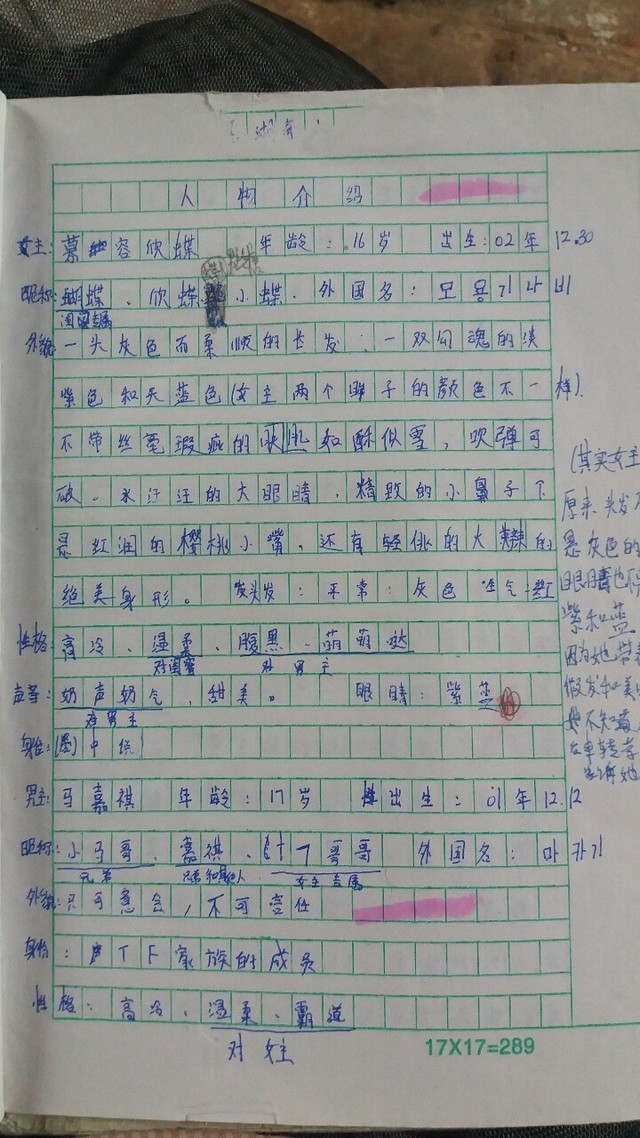 人物介绍
女主：慕容欣蝶 年龄：16岁 出生：02年12.30
昵称：蝴蝶、欣蝶、小蝶. 外国名：모용기나비
闺蜜专属
外貌：一头灰色而柔顺的长发；一双勾魂的淡
紫色和天蓝色(女主两个眸子的颜色不一样).
不带丝毫瑕疵的肤肌如酥似雪，吹弹可
破.水汪汪的大眼睛.精致的小鼻子下
是红润的樱桃小嘴，还有轻佻的大辫的
绝美身形。 头发：平常：灰色 生气：红
性格：高冷、温柔、腹黑、萌萌哒
对闺蜜 对男主
声等：奶声奶气，甜美。 眼睛：紫 蓝
对男主
身份：中统
男主：马嘉祺 年龄：17岁 出生：01年12.12
昵称：小马哥、嘉祺、哥哥 外国名：마카기
兄弟 女主专属
外貌：只可意会，不可言任
身份：TF家族的成员
性格：高冷、温柔、霸道
对女主
17X17=289
(其实女主
原来头发不
是灰色的
眼睛也不
紫和蓝
因为她带着
假发和美
她不知道